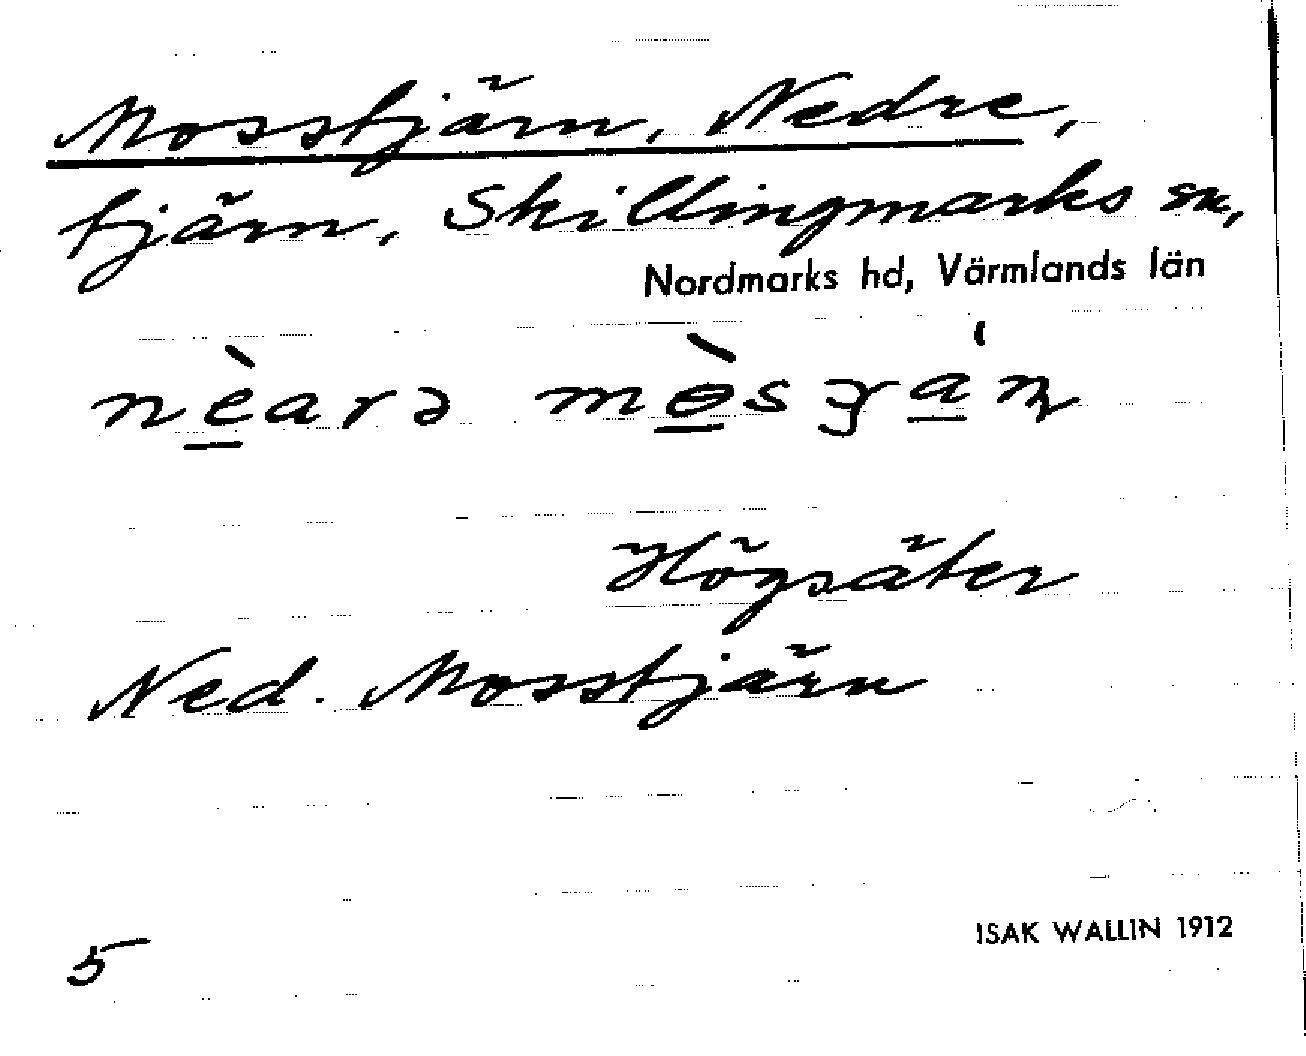 Mosstjärn, Nedre,
tjärn, Skillingmarks sn,
Nordmarks hd, Värmlands län
Högsäter
Ned. Mosstjärn
5
ISAK WALLIN 1912